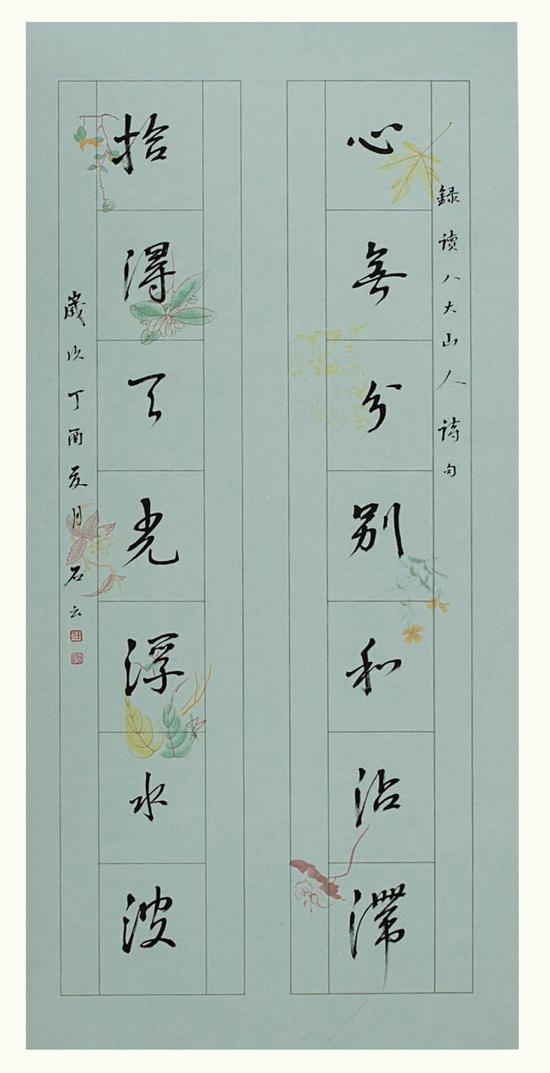 録读八大山人诗句
心無分别和沾滯
拾得天光浮水波
歲次丁酉夏月石云